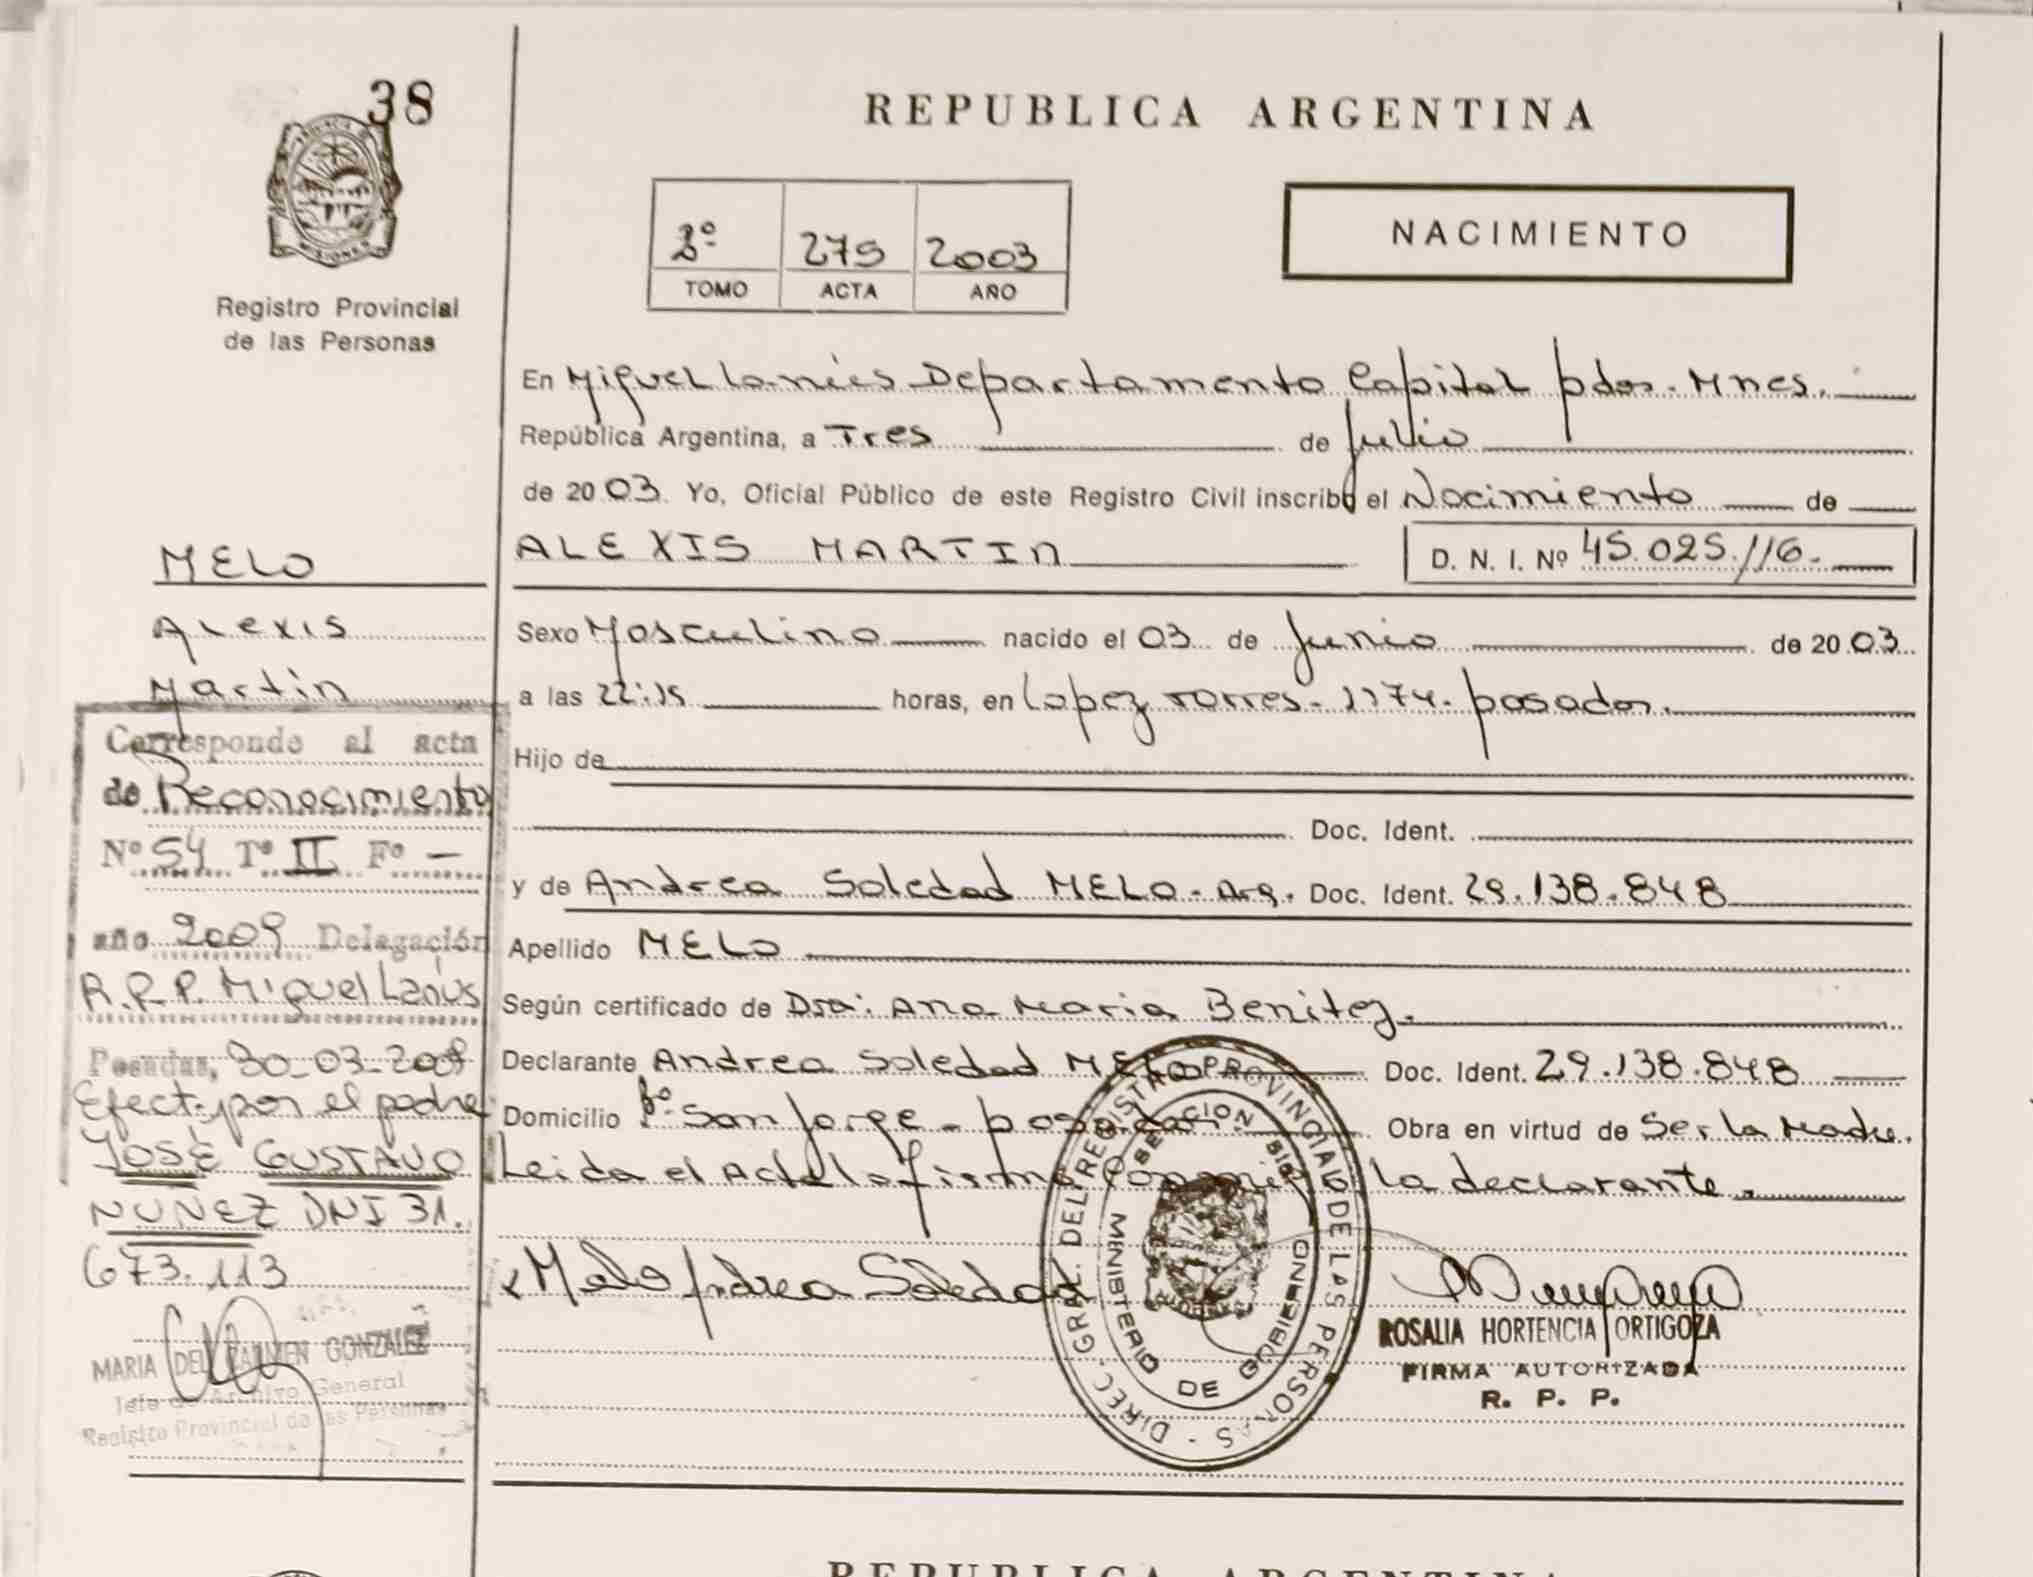 38
Registro Provincial
de las Personas
MELO
Alexis
Martin
Corresponde al acta
de Reconocimiento
Nº 54 Tº II Fº —
año 2009 Delegación
R.P.P. Miguel Lanús
Posadas, 30-03-2009
Efect. por el padre
JOSÉ GUSTAVO
NUÑEZ DNI 31.
673.113
MARIA DEL CARMEN GONZALEZ
Jefe de Archivo General
Registro Provincial de las Personas
REPUBLICA ARGENTINA
2º 275 2003
TOMO ACTA AÑO
NACIMIENTO
En Miguel Lanús Departamento Capital pdas. Mnes.
República Argentina, a Tres de Julio
de 2003. Yo, Oficial Público de este Registro Civil inscribo el Nacimiento de
ALEXIS MARTIN D. N. I. Nº 45.025.116.
Sexo Masculino nacido el 03 de Junio de 2003
a las 22:15 horas, en Lopez Torres - 1174 - posadas.
Hijo de
Doc. Ident.
y de Andrea Soledad MELO - Arg. Doc. Ident. 29.138.848
Apellido MELO
Según certificado de Dra: Ana Maria Benitez.
Declarante Andrea Soledad MELO Doc. Ident. 29.138.848
Domicilio Bº San Jorge - posadas Obra en virtud de Ser la Madre.
Leida el Acta la firma conmigo la declarante.
x Melo Andrea Soledad
DIREC. GRAL. DEL REGISTRO PROVINCIAL DE LAS PERSONAS -
MINISTERIO DE GOBIERNO
ROSALIA HORTENCIA ORTIGOZA
FIRMA AUTORIZADA
R. P. P.
REPUBLICA ARGENTINA